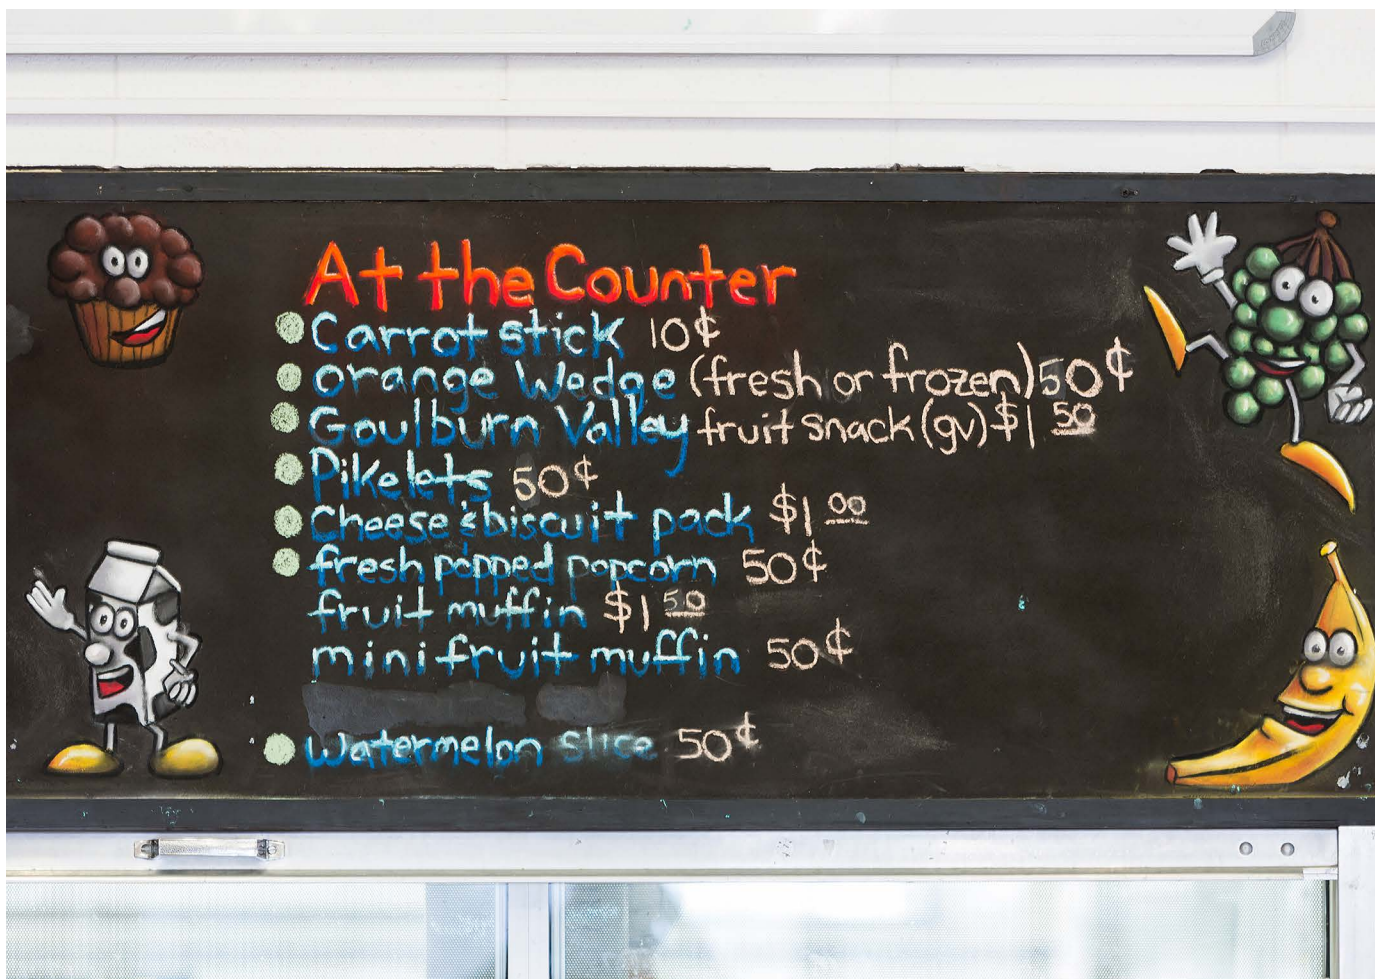 At the Counter
Carrot stick 10¢
orange Wedge (fresh or frozen) 50¢
Goulburn Valley fruit snack (gv) $1 50
Pikelets 50¢
Cheese & biscuit pack $1 00
fresh popped popcorn 50¢
fruit muffin $1 50
mini fruit muffin 50¢
Watermelon slice 50¢